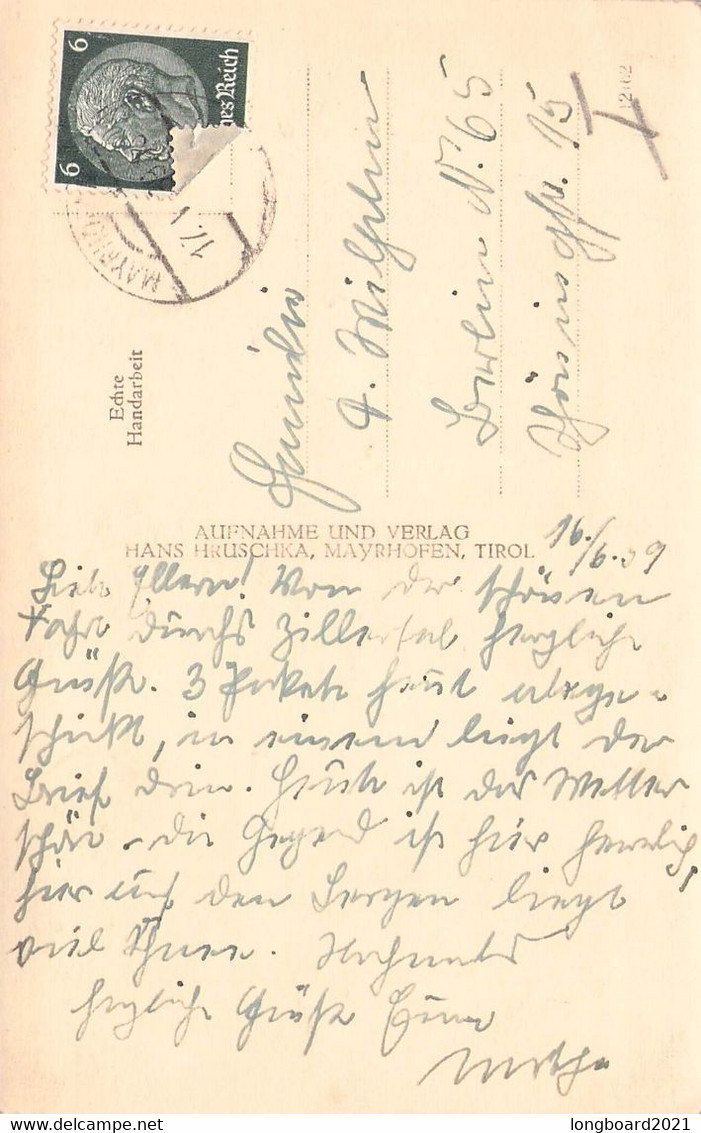 6 6
hes Reich
MAYRHO
17.
12162
I
Familie
Wilhelm
Berlin N. 65
15
Echte
Handarbeit
AUFNAHME UND VERLAG
HANS HRUSCHKA, MAYRHOFEN, TIROL
16./6.39
Liebe Eltern! Von der schönen
Fahrt durchs Zillertal herzliche
Grüße. 3 Pakete heut abge-
schickt, in einem liegt der
Brief drin. Heute ist das Wetter
schön - die Gegend ist hier herrlich,
hier auf den Bergen liegt
viel Schnee. Nochmals
herzliche Grüße Eure
delcampe.net
longboard2021